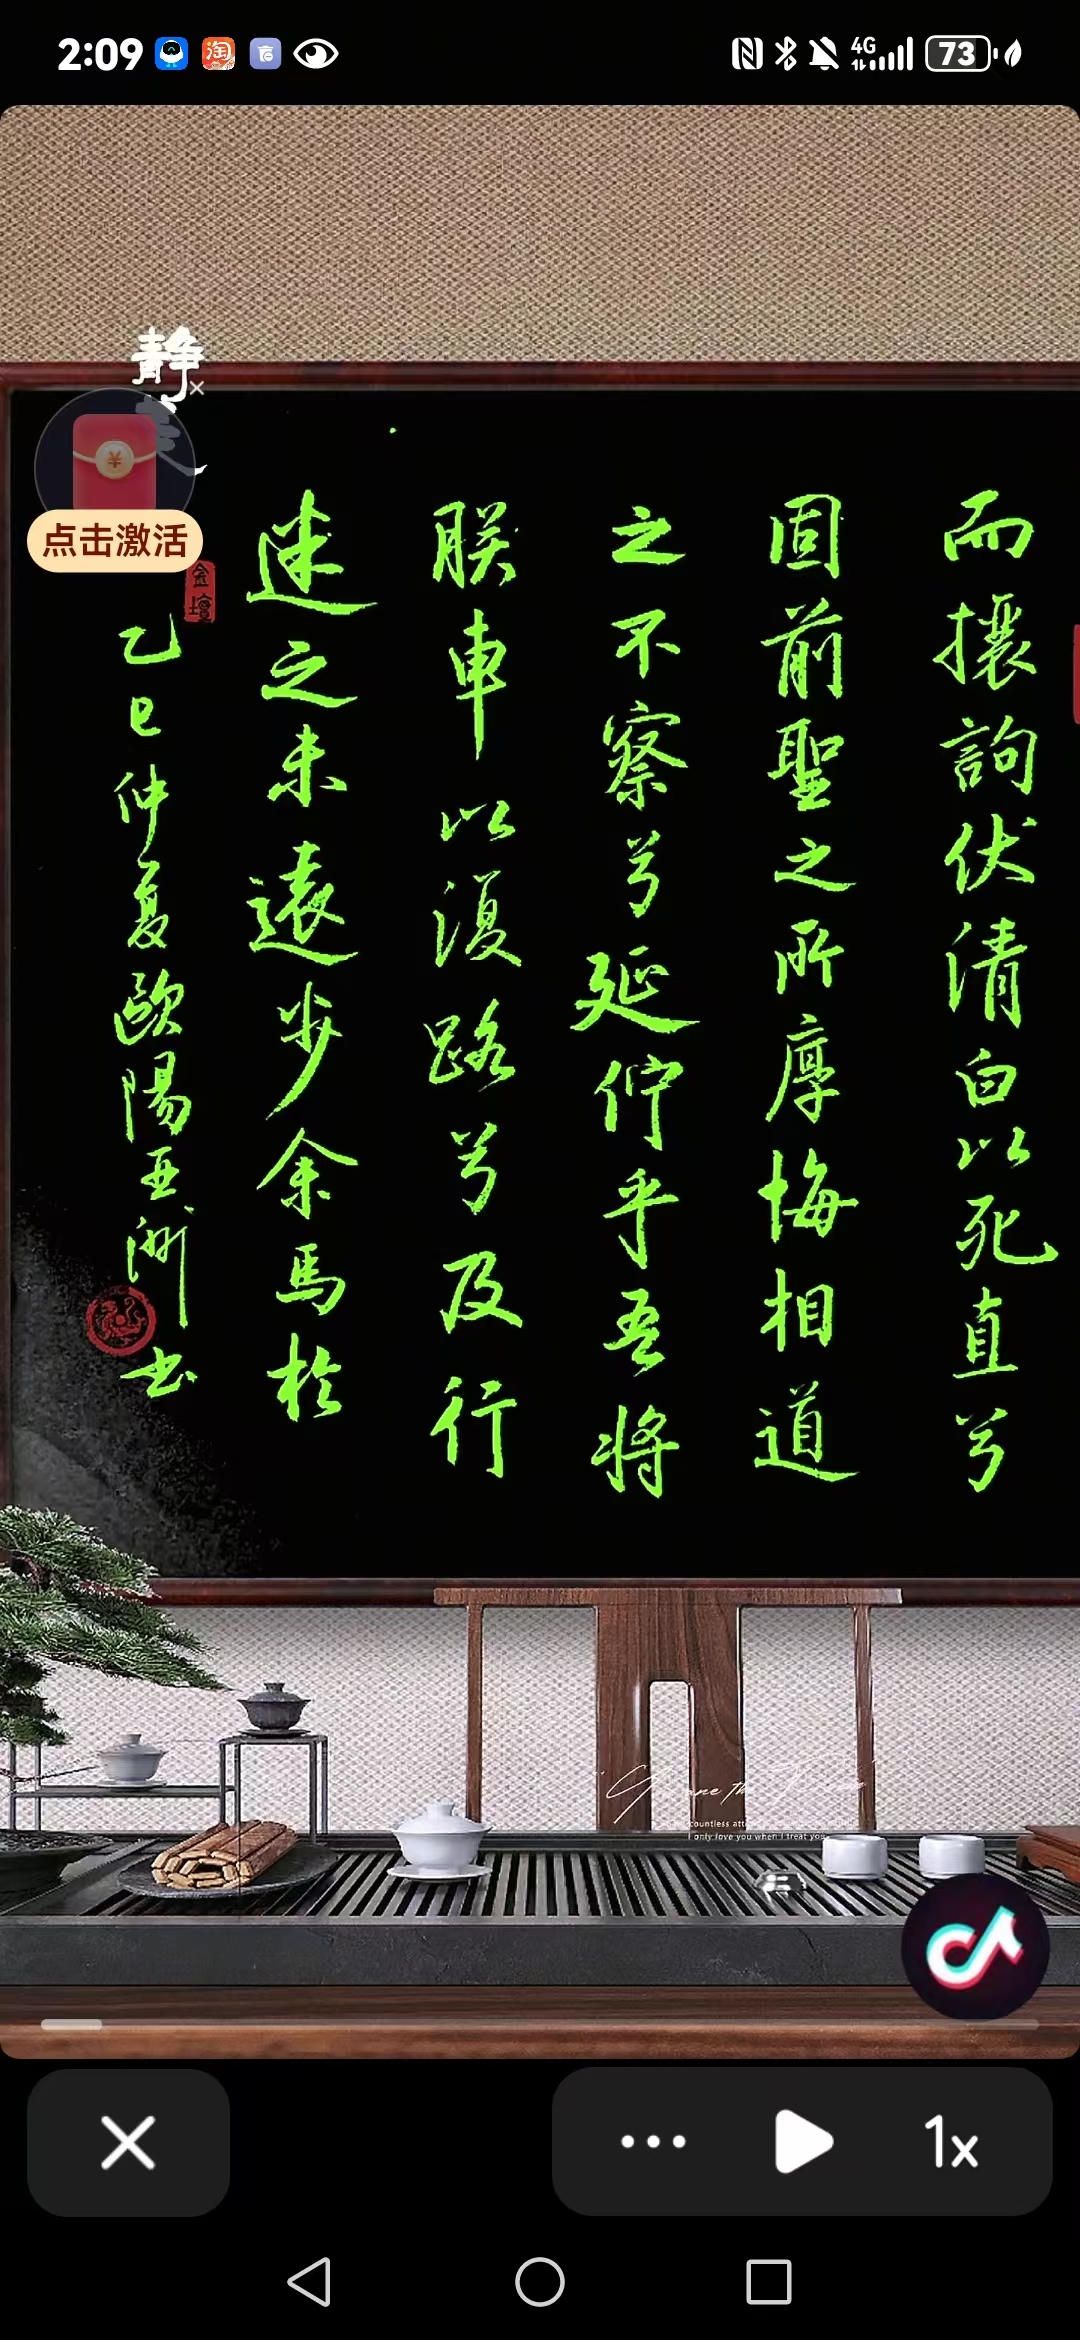 2:09
4G
73
静
点击激活
金壇
而攘訽伏清白以死直兮
固前聖之所厚悔相道
之不察兮延佇乎吾将
朕車以復路兮及行
迷之未遠步余馬於
乙巳仲夏歐陽亞洲书
I only love you when I treat you
1x